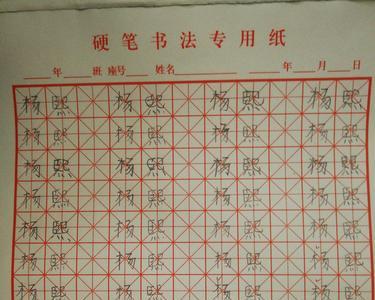 硬笔书法专用纸
年 班 座号 姓名 年 月 日
杨熙 杨熙 杨熙 杨熙
杨熙 杨熙 杨熙 杨熙
杨熙 杨熙 杨熙 杨熙
杨熙 杨熙 杨熙 杨熙
杨熙 杨熙 杨熙 杨熙
杨熙 杨熙 杨熙 杨熙
杨熙 杨熙 杨熙 杨熙